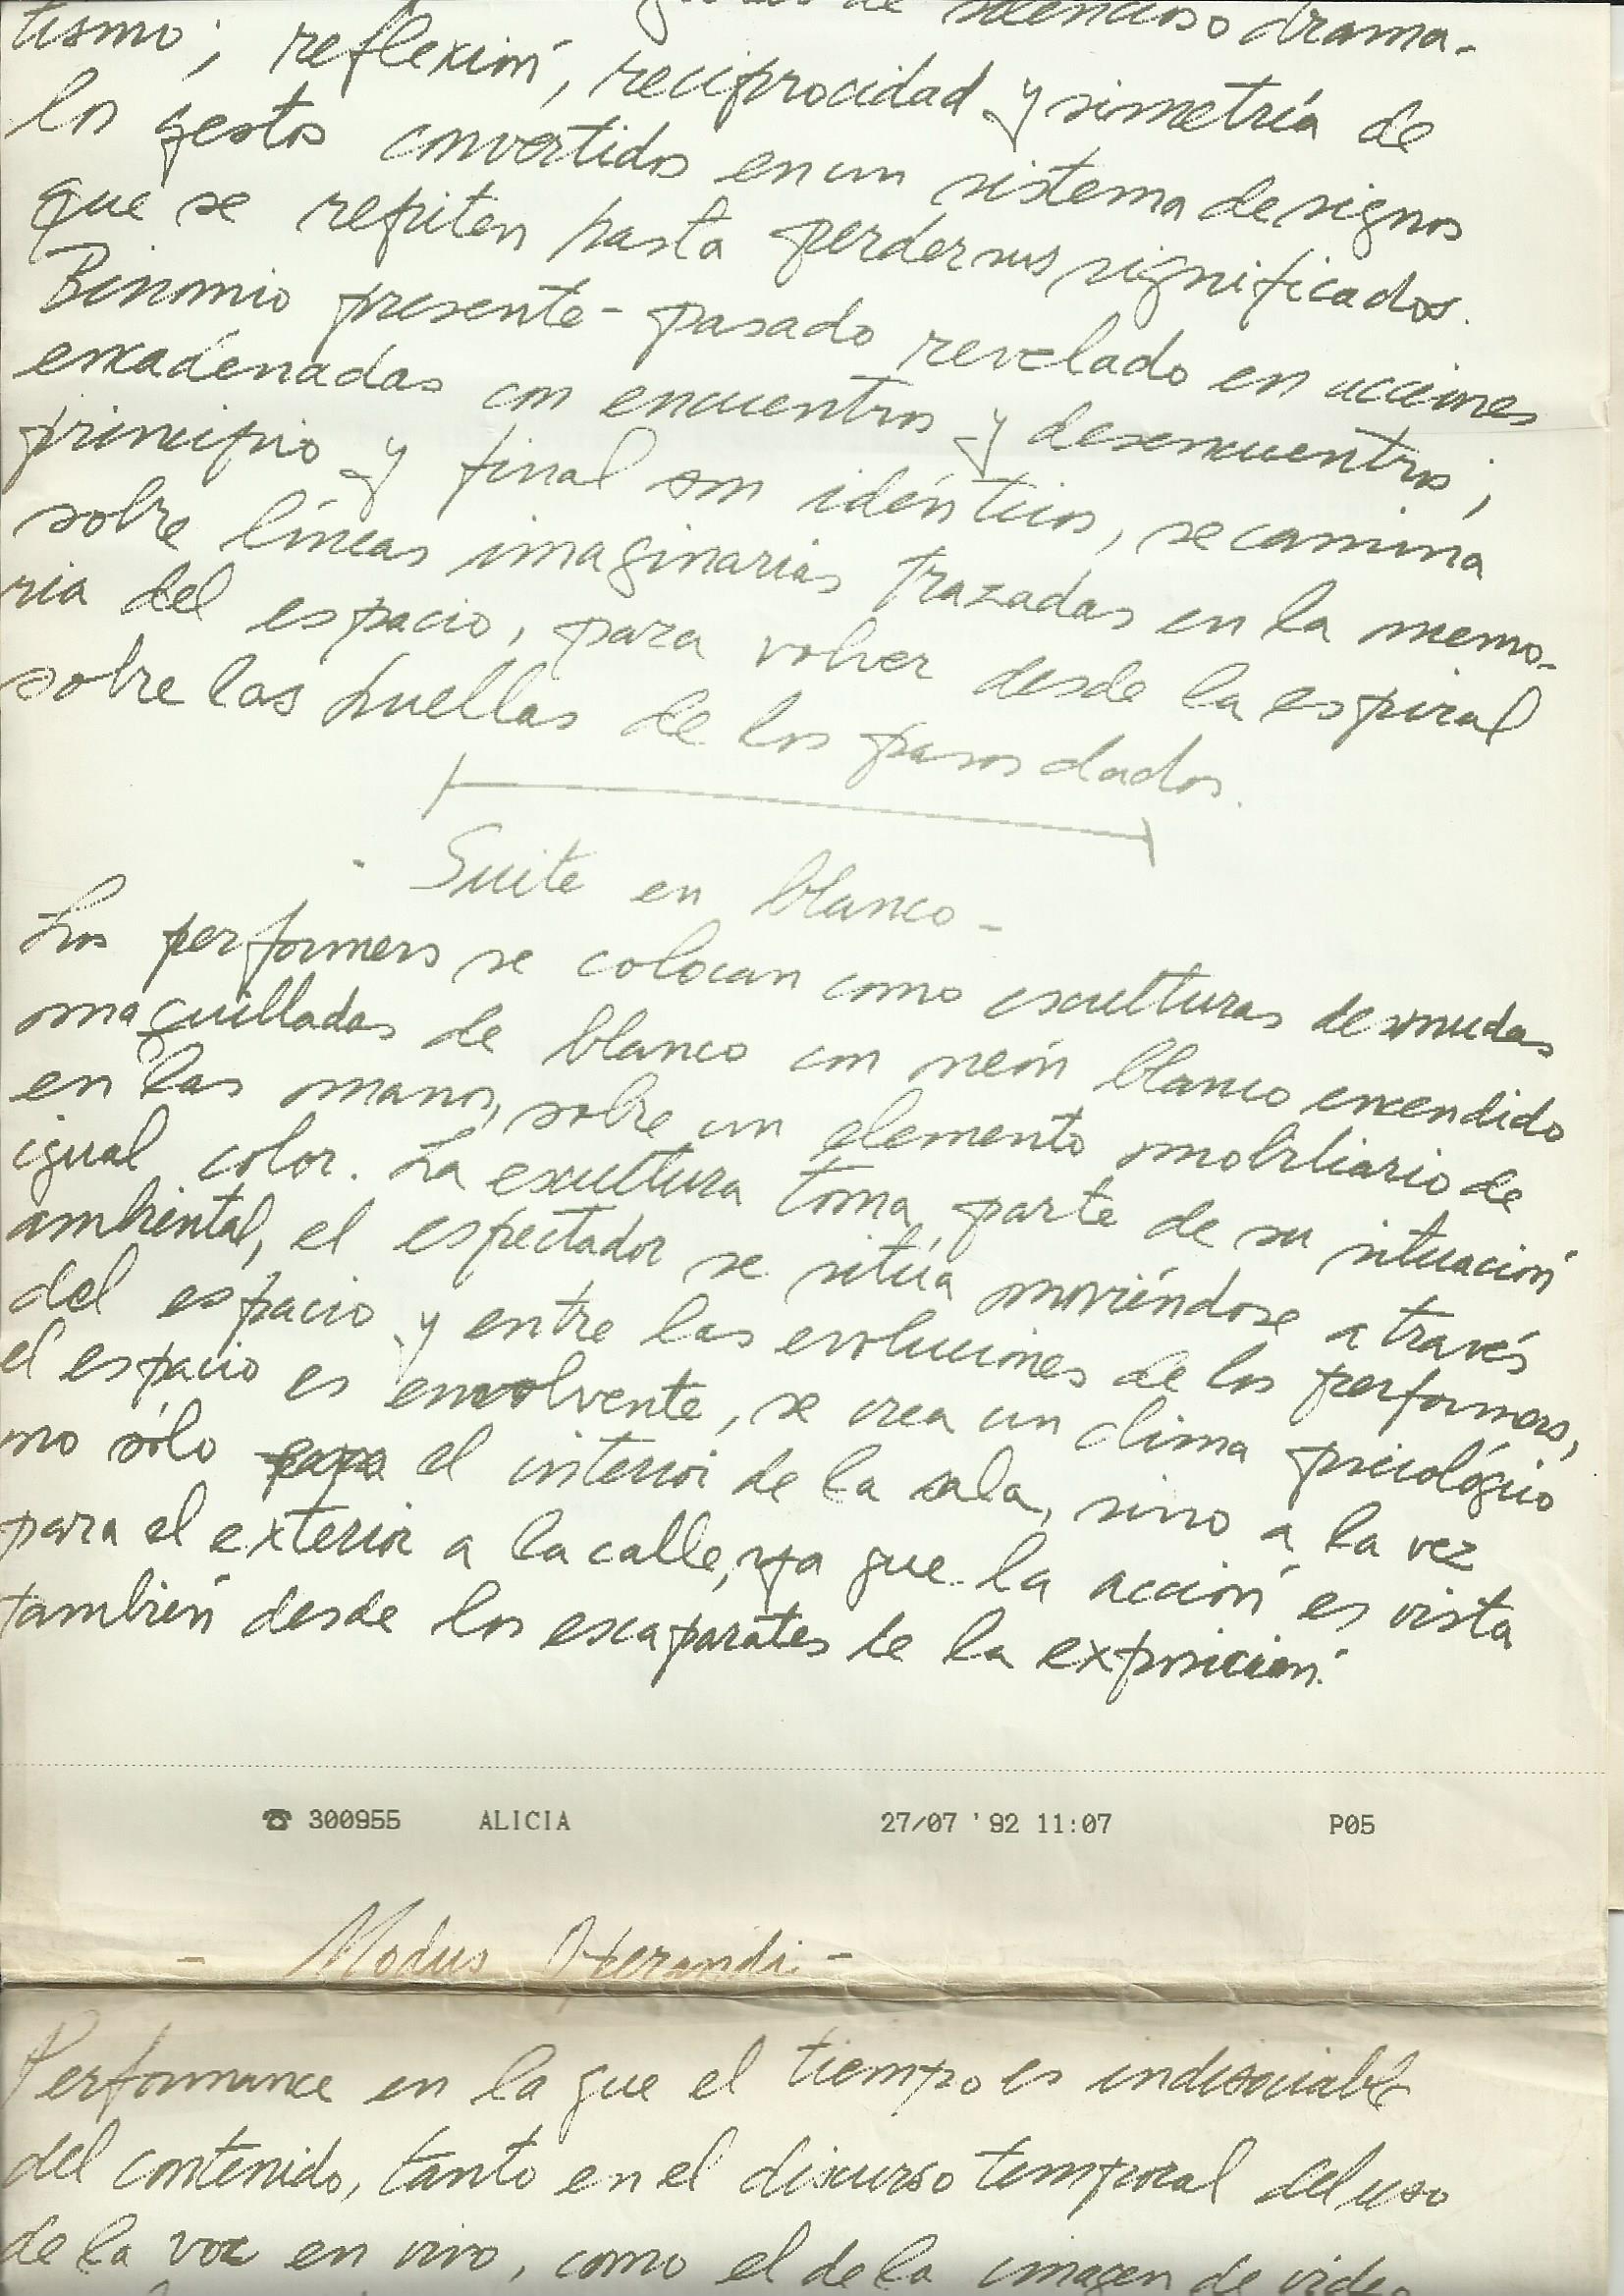 de silencioso drama-
tismo; reflexión, reciprocidad y simetría de
los gestos convertidos en un sistema de signos
que se repiten hasta perder sus significados.
Binomio presente-pasado revelado en acciones
encadenadas con encuentros y desencuentros;
principio y final son idénticos, se camina
sobre líneas imaginarias trazadas en la memo-
ria del espacio, para volver desde la espiral
sobre las huellas de los pasos dados.
- Suite en blanco -
Los performers se colocan como esculturas desnudas
maquilladas de blanco con neón blanco encendido
en las manos, sobre un elemento mobiliario de
igual color. La escultura toma parte de su situación
ambiental, el espectador se sitúa moviéndose a través
del espacio y entre las evoluciones de los performers,
el espacio es envolvente, se crea un clima psicológico
no sólo para el interior de la sala, sino a la vez
para el exterior a la calle, ya que la acción es vista
también desde los escaparates de la exposición.
☎ 300955 ALICIA 27/07 '92 11:07 P05
- Modus Operandi -
Performance en la que el tiempo es indisociable
del contenido, tanto en el discurso temporal del uso
de la voz en vivo, como el de la imagen de video